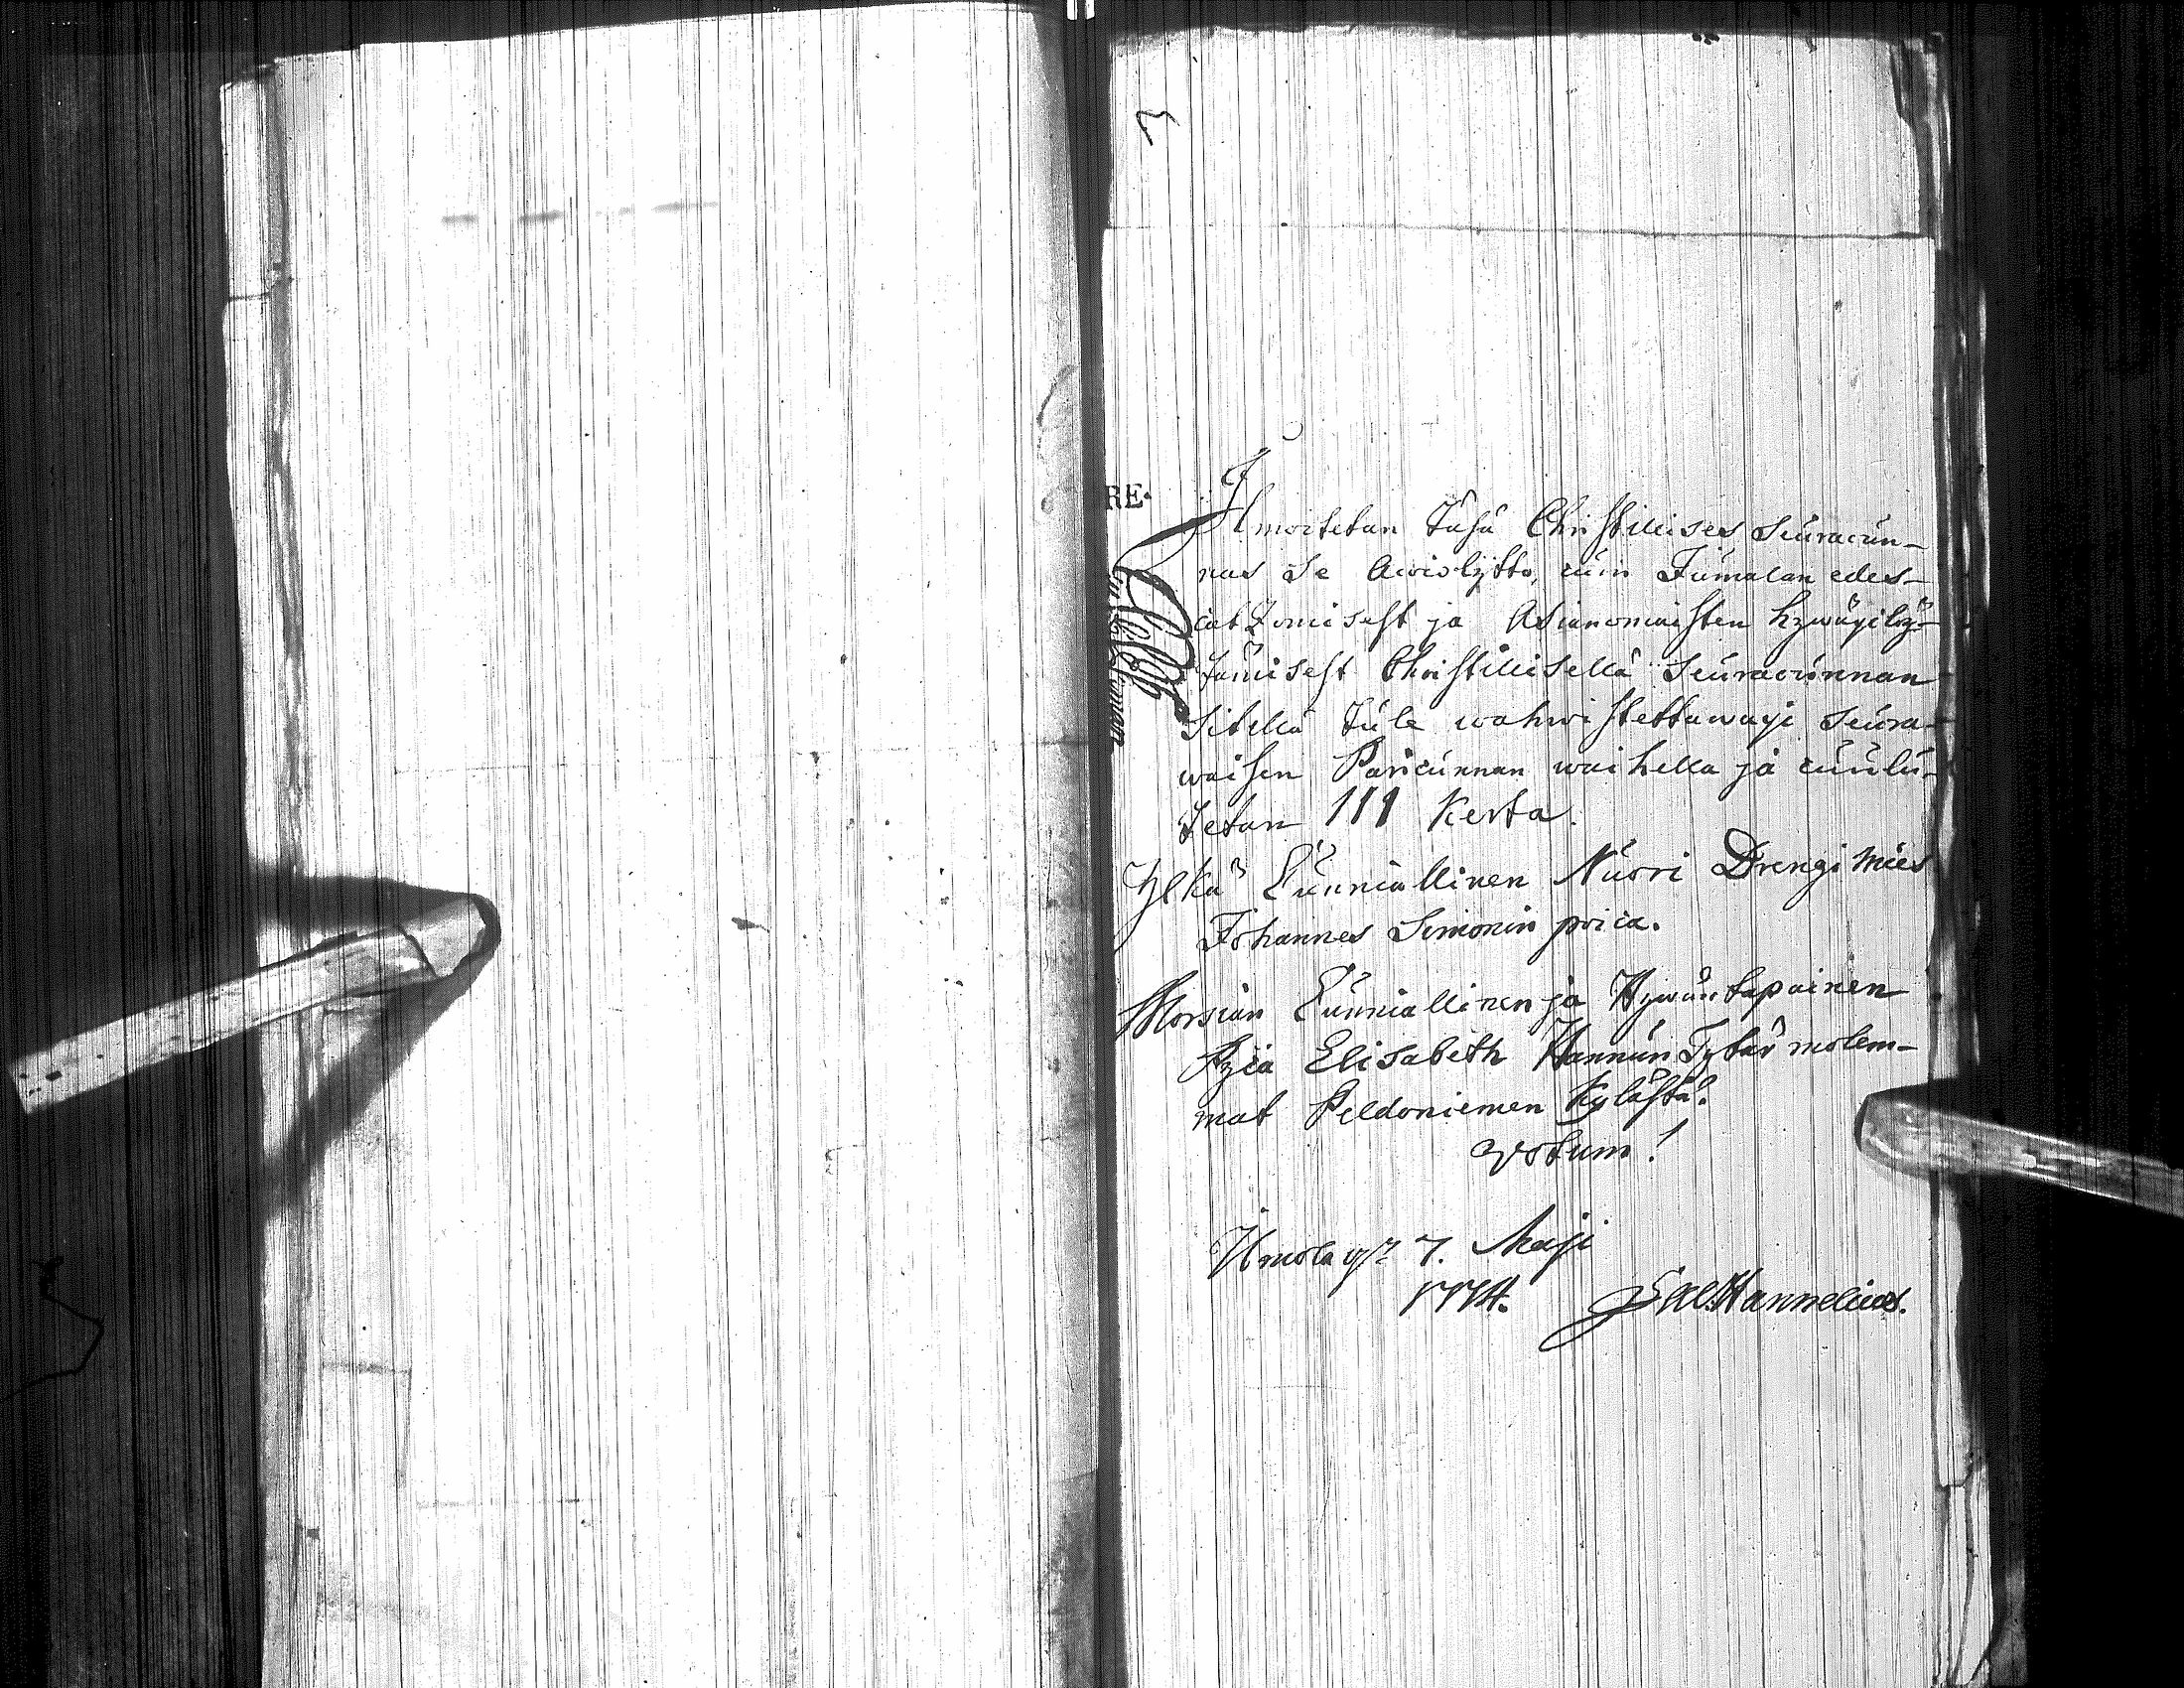 3
RE.
Ilmoitetan Täsä Christillises Seüracün-
nas Se Awioliitto, cüin Jümalan edes-
catZomisest ja Asianomaisten hywäxilöy-
tämisest Christillisellä Seüracünnan
Sitellä tüle wahwistettawaxi Seüra-
waisen Paricünnan waihella ja cüülü-
tetan III Kerta.
Ylkä Cünniallinen Nüori Drengi Mies
Johannes Simonin poica.
Morsian Cünniallinen ja Hywäntapainen
Pyia Elisabeth Hannün Tytär molem-
mat Peldoniemen Kylästä.
Votum!
7. Maji
1774. Hannelius.